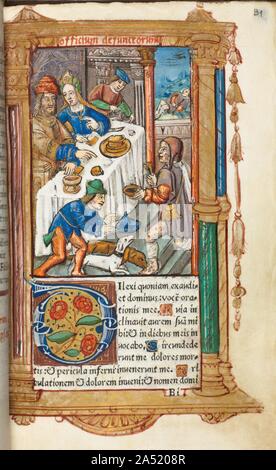 officium defunctorum
DIlexi quoniam exaudi
et dominus: vocē ora
tionis mee. Quia in
clinavit aurem suā mi
hi: & in diebus meis in
vocabo. Circundede
runt me dolores mor
tis: & pericula inferni invenerunt me. Tri
bulationem & dolorem inveni: & nomen domi
Bi
alamy
2A5208R